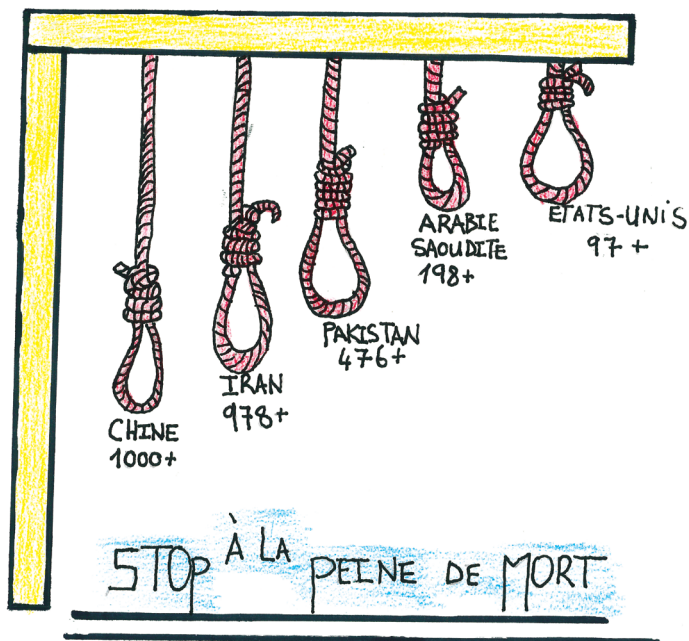 CHINE
1000+
IRAN
978+
PAKISTAN
476+
ARABIE
SAOUDITE
198+
ETATS-UNIS
97 +
STOP À LA PEINE DE MORT